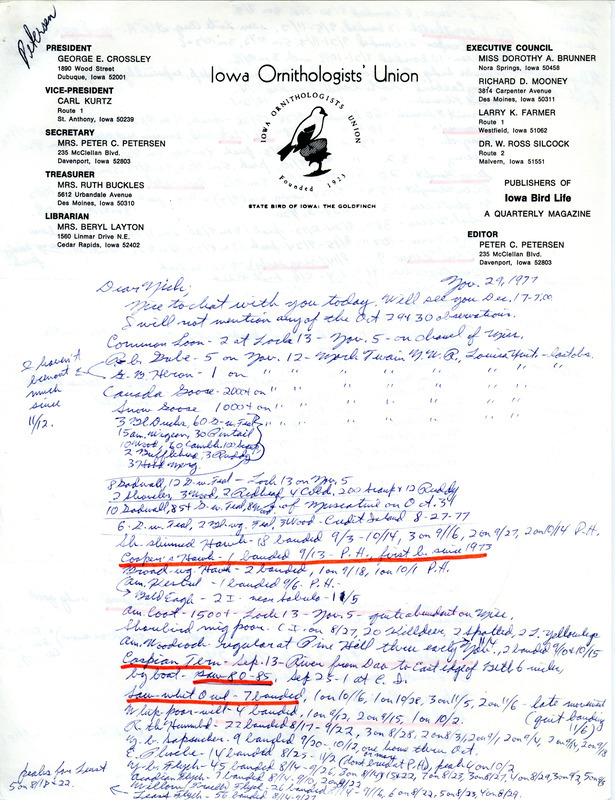 Petersen
PRESIDENT
GEORGE E. CROSSLEY
1890 Wood Street
Dubuque, Iowa 52001
VICE-PRESIDENT
CARL KURTZ
Route 1
St. Anthony, Iowa 50239
SECRETARY
MRS. PETER C. PETERSEN
235 McClellan Blvd.
Davenport, Iowa 52803
TREASURER
MRS. RUTH BUCKLES
5612 Urbandale Avenue
Des Moines, Iowa 50310
LIBRARIAN
MRS. BERYL LAYTON
1560 Linmar Drive N.E.
Cedar Rapids, Iowa 52402
Iowa Ornithologists' Union
IOWA ORNITHOLOGISTS UNION
Founded 1923
STATE BIRD OF IOWA: THE GOLDFINCH
EXECUTIVE COUNCIL
MISS DOROTHY A. BRUNNER
Nora Springs, Iowa 50458
RICHARD D. MOONEY
3814 Carpenter Avenue
Des Moines, Iowa 50311
LARRY K. FARMER
Route 1
Westfield, Iowa 51062
DR. W. ROSS SILCOCK
Route 2
Malvern, Iowa 51551
PUBLISHERS OF
Iowa Bird Life
A QUARTERLY MAGAZINE
EDITOR
PETER C. PETERSEN
235 McClellan Blvd.
Davenport, Iowa 52803
Nov. 29, 1977
Dear Nick,
Nice to chat with you today. Will see you Dec. 17-7:00
I will not mention any of the Oct 29 & 30 observations.
Common Loon - 2 at Lock 13 - Nov. 5 - on channel of Miss.
R-b Gulls - 5 on Nov. 12 - Mark Twain N.W.R., Louisa Unit
G. B. Heron - 1 on " " " " "
I haven't
been out
much
since
11/12.
Canada Goose - 2000+ on " " " " "
Snow Goose 1000+ on " " " " "
3 Bl Ducks, 60 G-w. Teal
15 am. wigeon, 30 Pintail
10 Wood, 60
2 Bufflehead, 3 Ruddy
3 Hood Merg.
8 Gadwall, 12 G-w. Teal - Lock 13 on Nov. 5
2 Shoveler, 3 Wood, 2 Redhead, 4 Gold, 200 Scaup & 12 Ruddy
10 Gadwall, 85+ G-w. Teal, 8 Wood - of Muscatine on Oct. 34
6 - w. Teal, 2 - wg. Teal, 3 Wood - Credit Island 8-27-77
Sh. shinned Hawk - 18 banded 9/3 - 10/14, 3 on 9/16, 2 on 9/27, 2 on 10/14 P.H.
Cooper's Hawk - 1 banded 9/13 - P.H., first b. since 1973
Broad-wg Hawk - 2 banded, 1 on 9/18, 1 on 10/1 P.H.
Am. Kestrel - 1 banded 9/6. P.H. -
Bald Eagle - 2 I - near Sabula - 11/5
Am. Coot - 1500+ - Lock 13 - Nov. 5 - quite abundant on Miss.
Shorebird mig poor - C. I. on 8/27, 20 Killdeer, 2 Spotted, 2 L. Yellowlegs
Am. Woodcock - regular at Pine Hill thru early Nov., 2 banded 9/0 & 10/15
Caspian Tern - Sep. 13 - River from Dav. to East edge of with 6 miles
by boat - Saw 80-85, Sep 25 - 1 at C. I.
Saw-whet Owl - 7 banded, 1 on 10/16, 1 on 10/28, 3 on 11/5, 2 on 11/6 - late movement
(quit banding
11/6)
Whip-poor-will 4 banded, 1 on 9/2, 2 on 9/15, 1 on 10/2.
R. th Hummbd - 22 banded 8/17 - 9/22, 3 on 8/28,
Y. b. Sapsucker - 9 banded 9/20 - 10/12, one home thru Oct.
E. Phoebe - 14 banded 8/25 - 11/2 peak 4 on 10/2
Y-b. Flych - 45 banded 8/14 - 9/26,
Acadian Flych - 7 banded 8/14 -
Willow (Traill) Flych - 26 banded 8/14 - 9/16, 6 on 8/22, 5 on 8/23, 4 on 8/29.
Least Flych - 56 banded 8/14 - 9/27
peaks for Least
5 on 8/18 & 22.